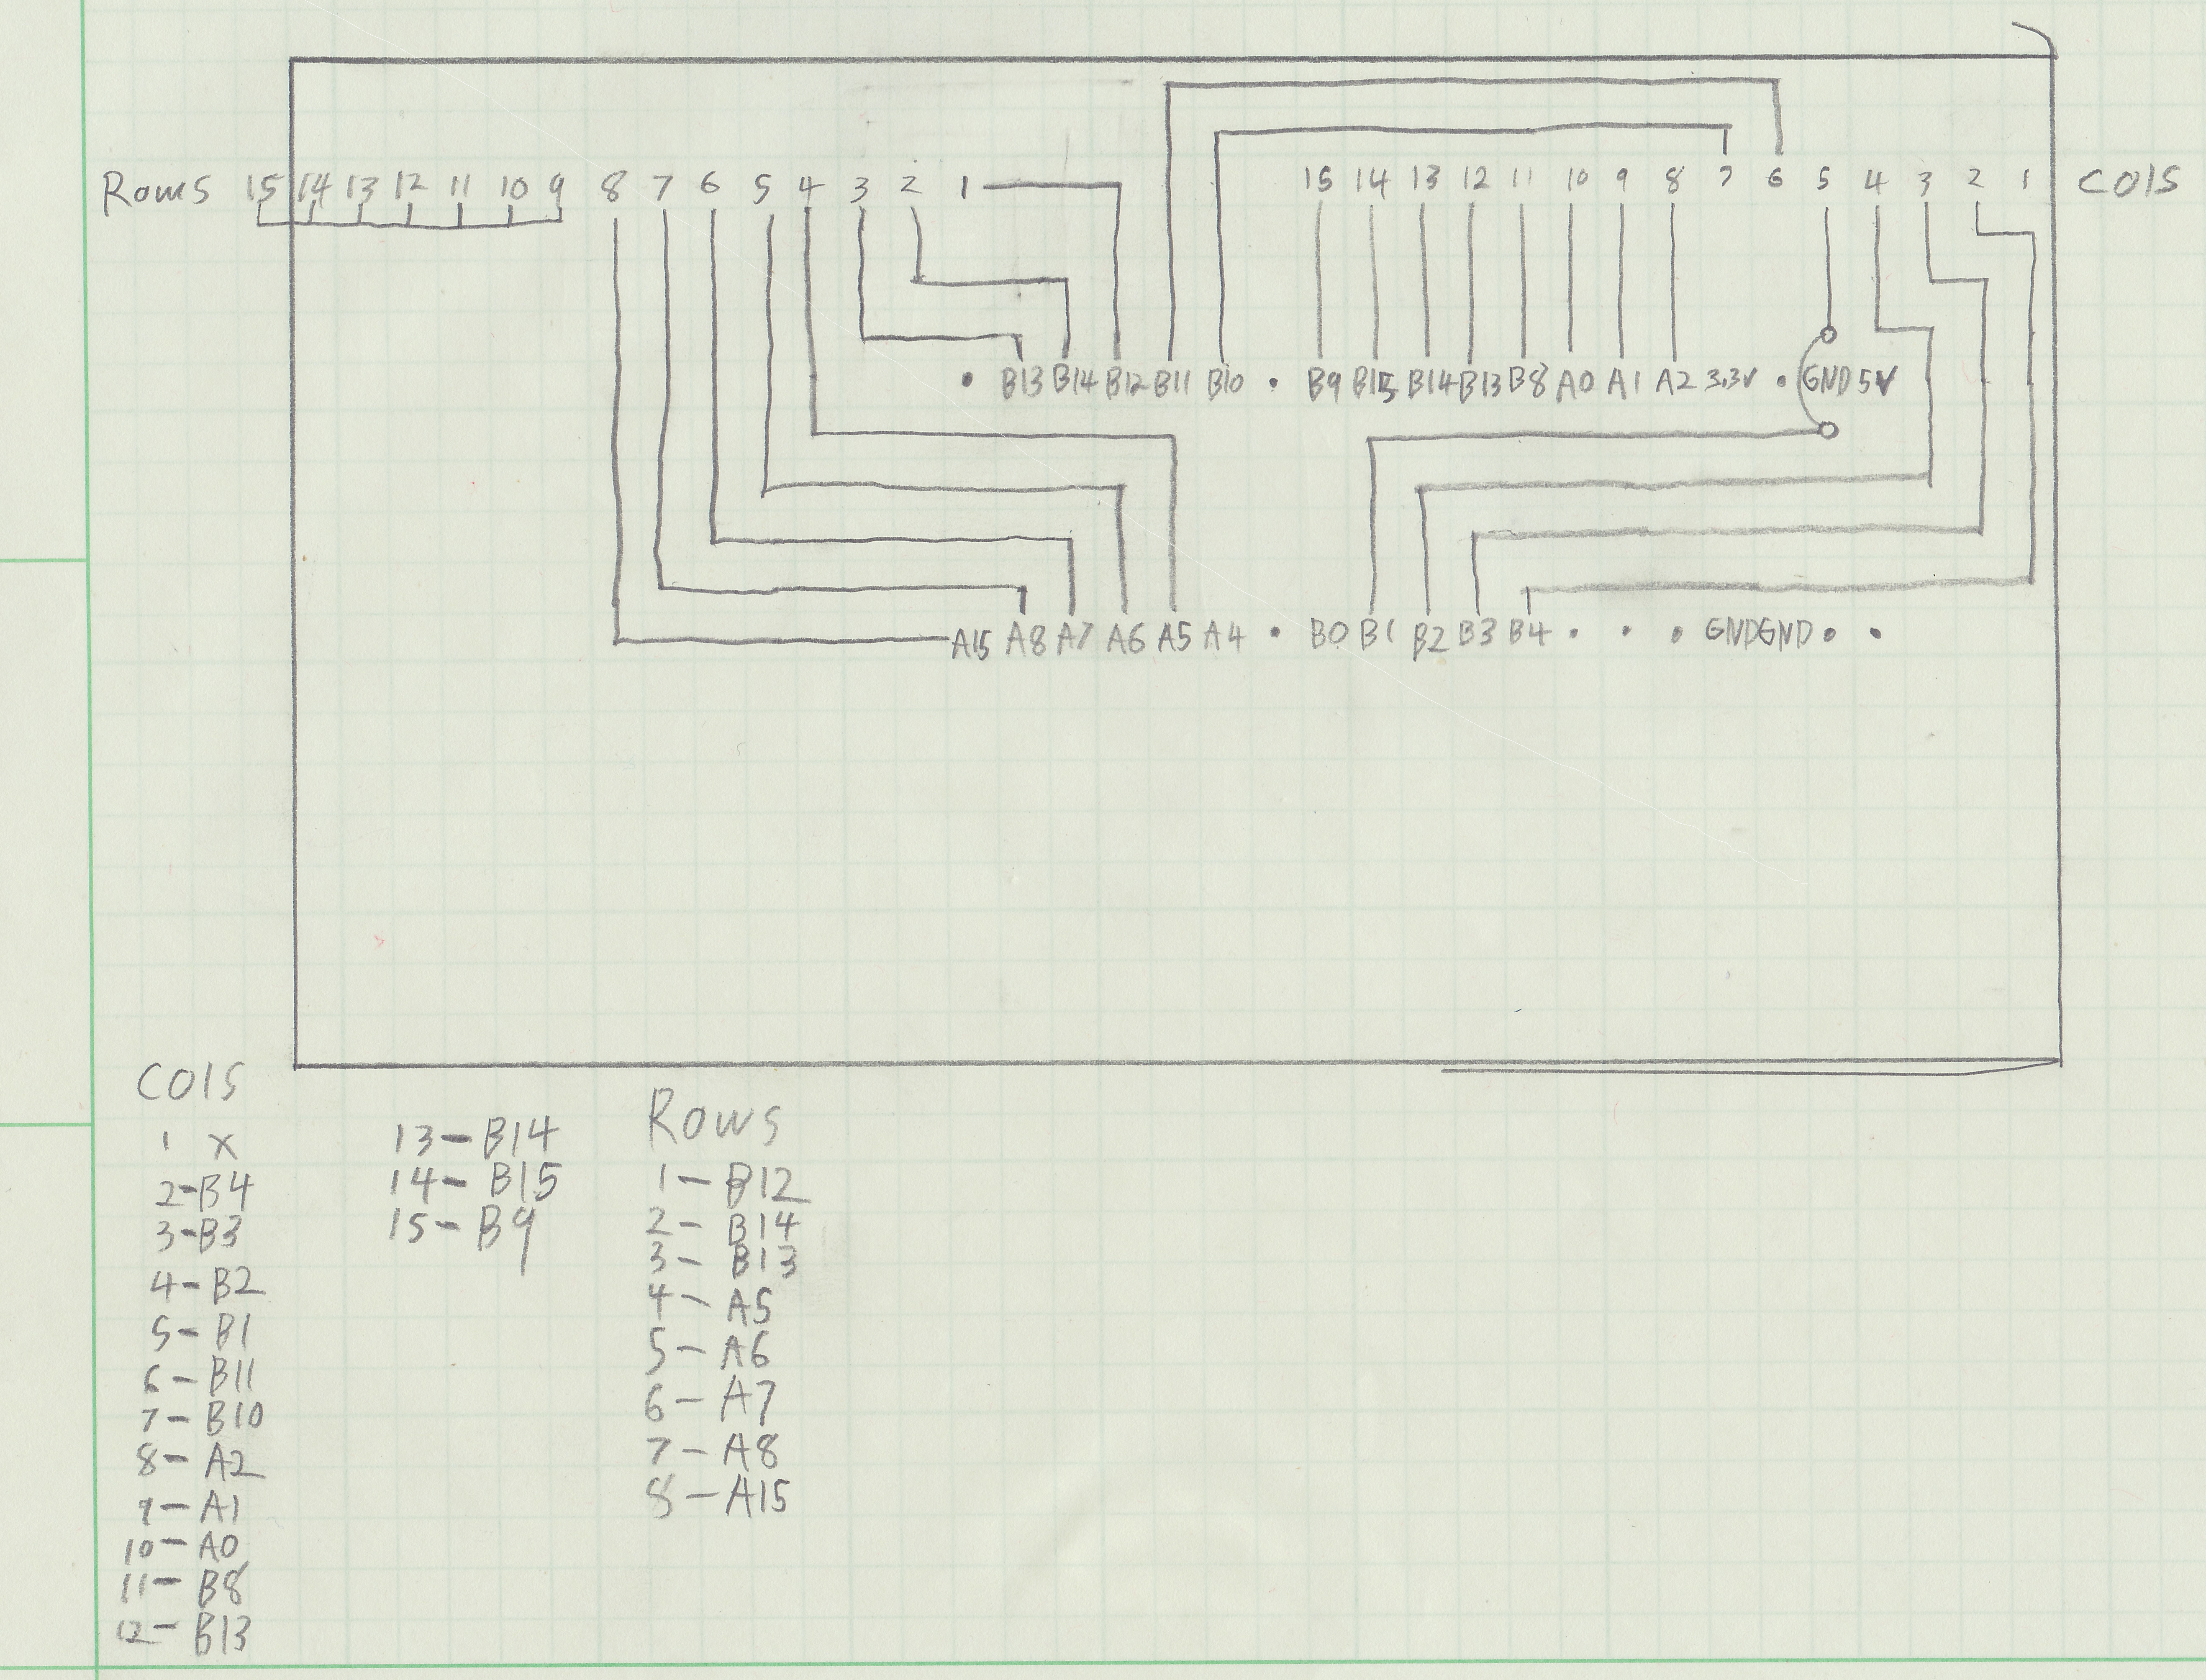 Rows 15 14 13 12 11 10 9 8 7 6 5 4 3 2 1 15 14 13 12 11 10 9 8 7 6 5 4 3 2 1 Cols
B13 B14 B12 B11 B10 B9 B15 B14 B13 B8 A0 A1 A2 3.3V GND 5V
A15 A8 A7 A6 A5 A4 B0 B1 B2 B3 B4 GND GND
Cols
1 x
2-B4
3-B3
4-B2
5-B1
6-B11
7-B10
8-A2
9-A1
10-A0
11-B8
12-B13
13-B14
14-B15
15-B9
Rows
1-B12
2-B14
3-B13
4-A5
5-A6
6-A7
7-A8
8-A15